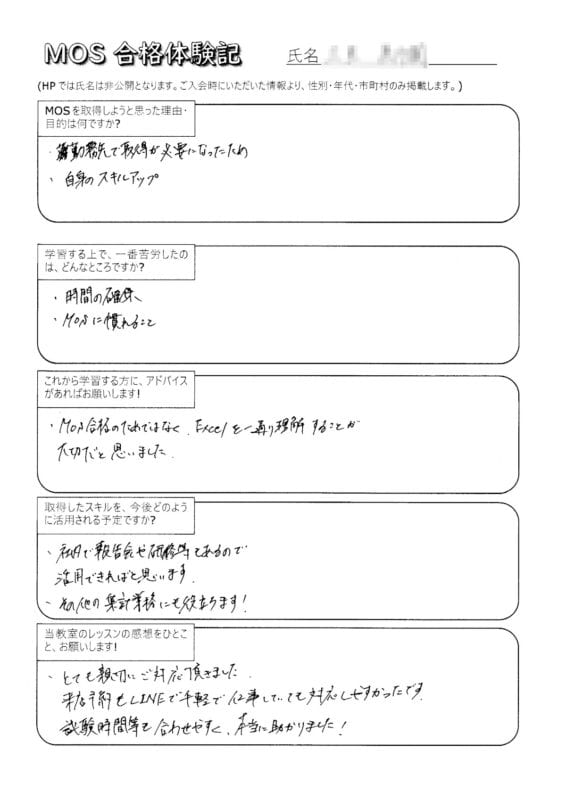 MOS 合格体験記
氏名
(HPでは氏名は非公開となります。ご入会時にいただいた情報より、性別・年代・市町村のみ掲載します。)
MOSを取得しようと思った理由・
目的は何ですか?
・勤務先で取得が必要になったため
・自身のスキルアップ
学習する上で、一番苦労したの
は、どんなところですか?
・時間の確保
・MOSに慣れること
これから学習する方に、アドバイス
があればお願いします!
・MOS合格のためではなく、Excelを一通り理解することが
大切だと思いました。
取得したスキルを、今後どのよう
に活用される予定ですか?
・社内で報告会や研修等もあるので
活用できればと思います。
・その他の集計業務にも役立ちます!
当教室のレッスンの感想をひとこ
と、お願いします!
・とても親切にご対応頂きました。
来店予約もLINEで手軽で仕事していても対応しやすかったです。
試験時間等も合わせやすく、本当に助かりました!